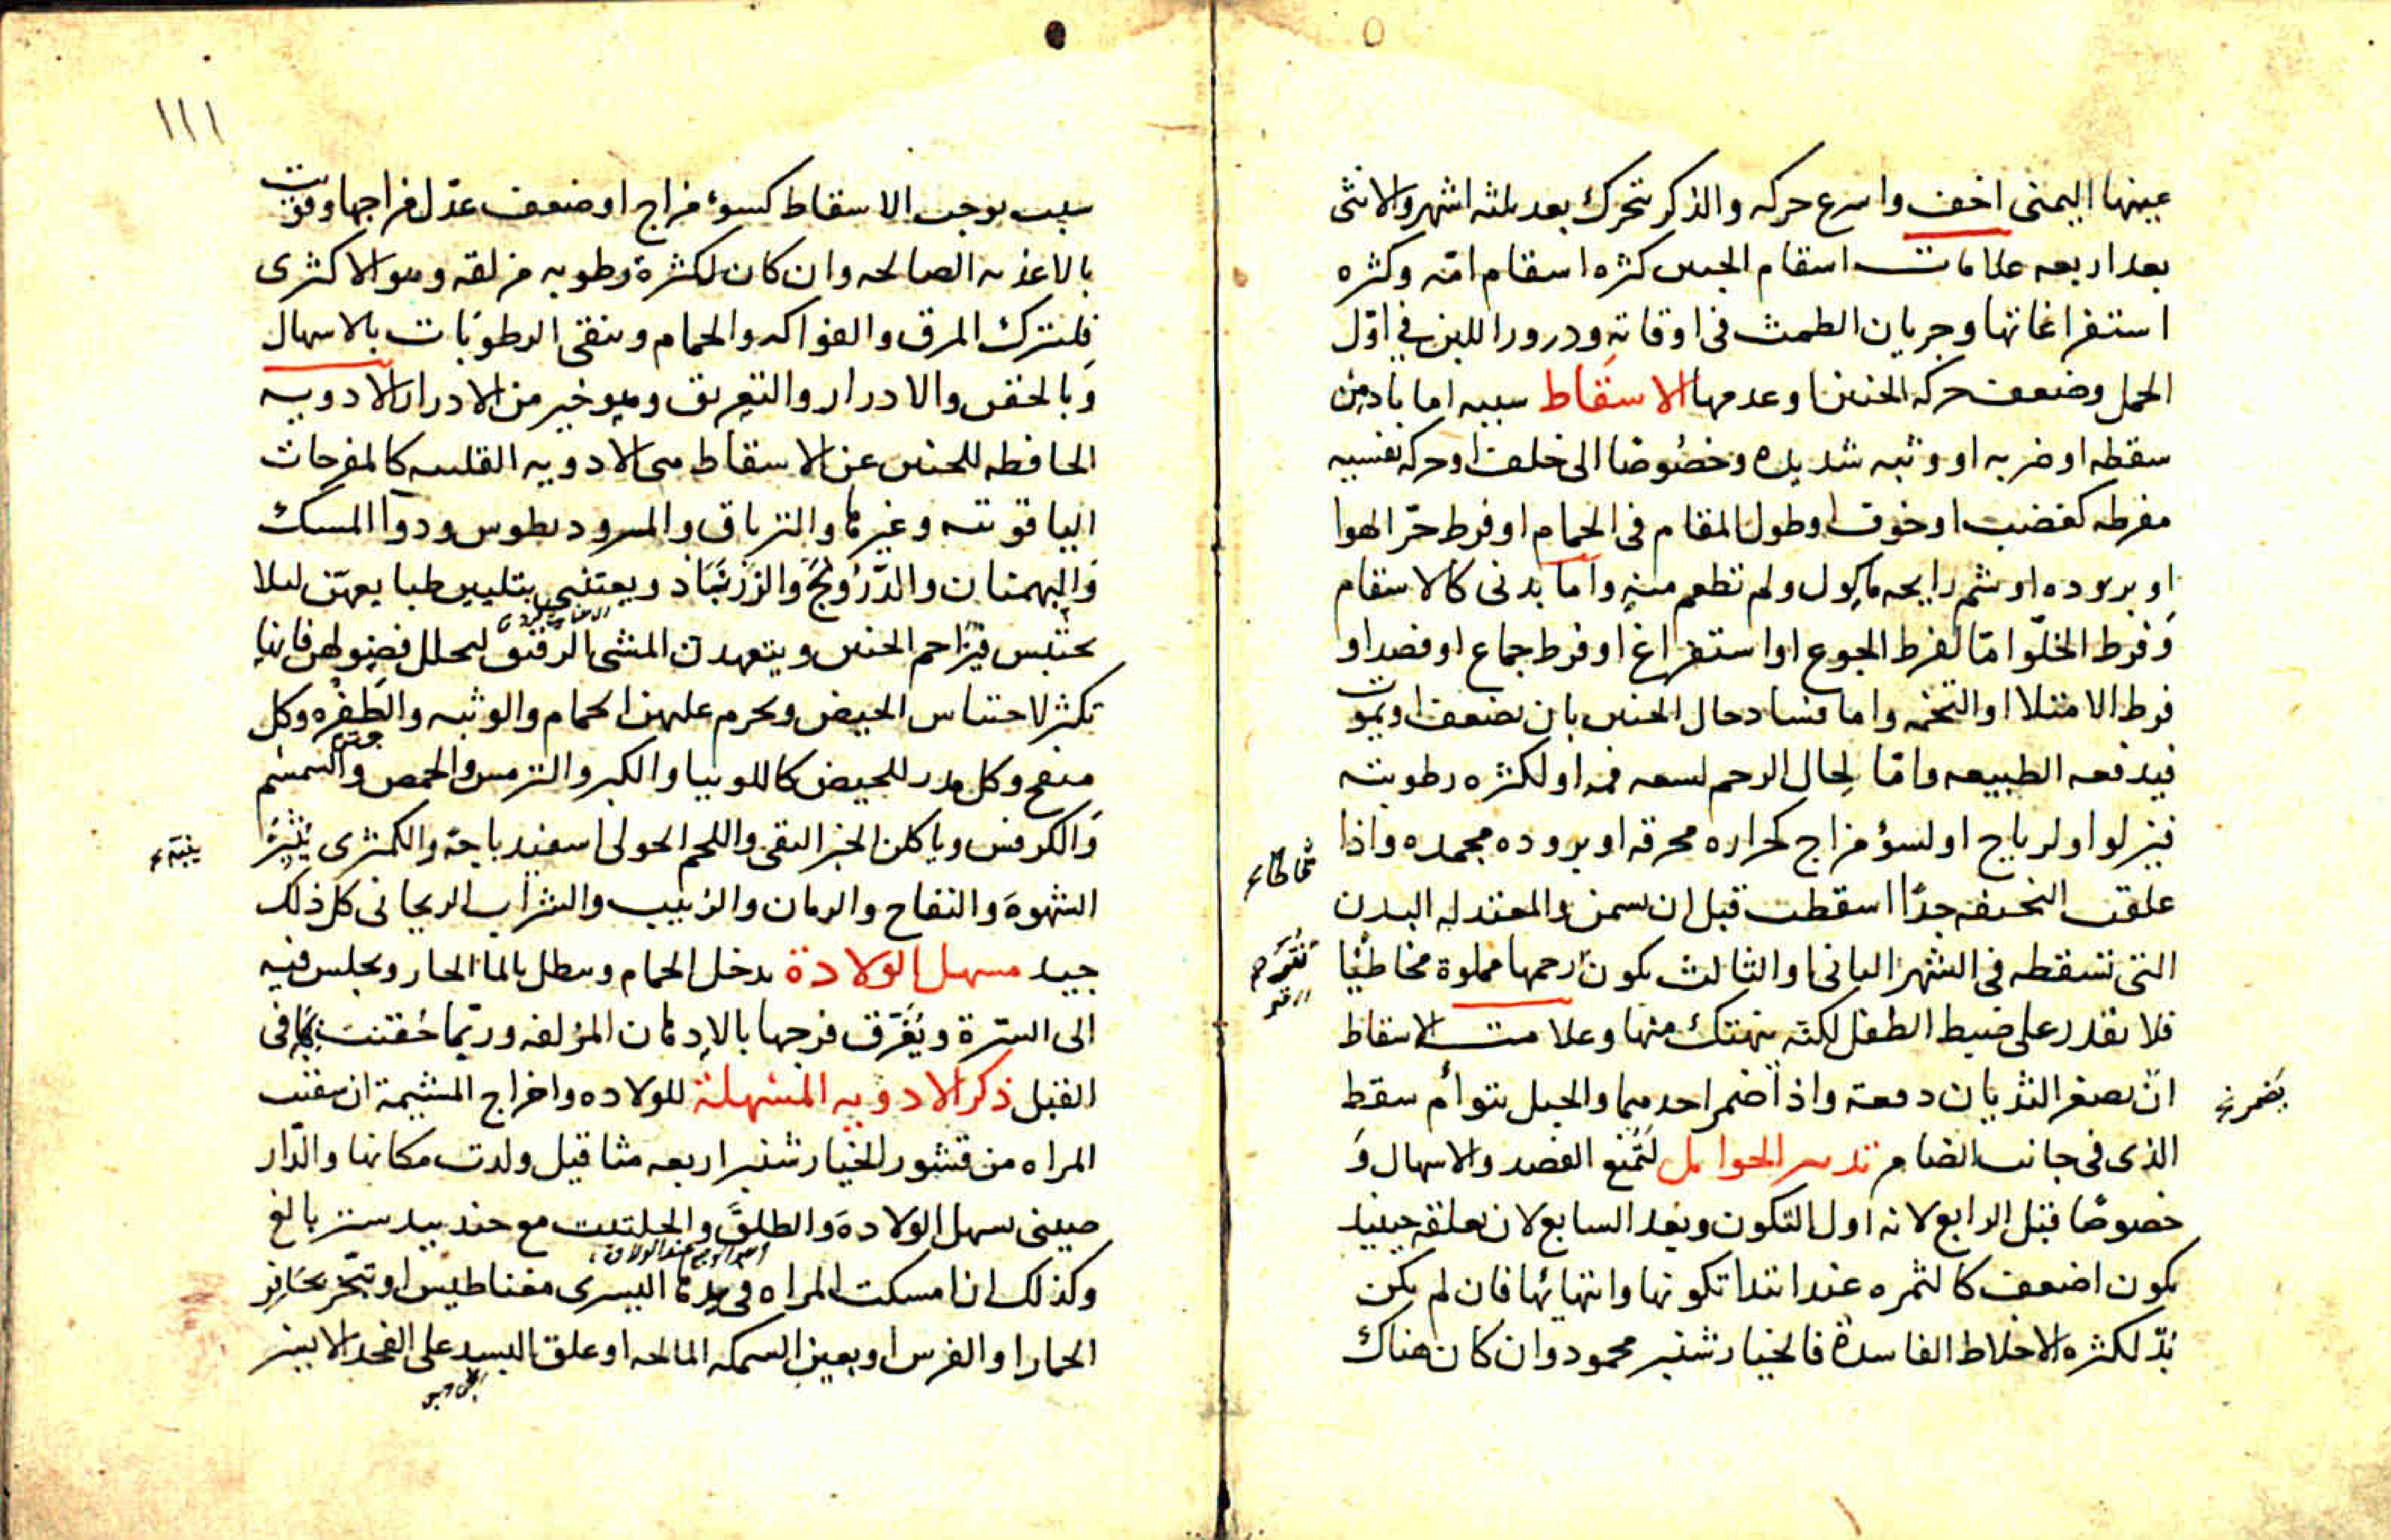 عينها اليمنى اخف واسرع حركه والذكر يتحرك بعد ثلثه اشهر والانثى
بعد اربعه علامات اسقام الجنين كثره اسقام امّه وكثره
استفراغاتها وجريان الطمث فى اوقاته ودرور اللبن في اوّل
الحمل وضعف حركه الجنين او عدمها الاسقاط سببه اما بادٍ من
سقطه او ضربه او وثبه شديده وخصُوصًا الى خلف او حركه نفسيه
مفرطه كغضب او خوف او طول المقام فى الحمام او فرط حرّ الهوا
او بروده او شم رايحه ماكول ولم تطعم منه واما بدنى كالاسقام
وَفرط الخلوّ امّا لفرط الجوع او استفراغ او فرط جماع او فصد او
فرط الامتلا او التخمه واما فساد حال الجنين بان يضعف او يموت
فيدفعه الطبيعه وامّا لِحال الرحم لسعه فمه او لكثره رطوبته
فيزلق او لرياح او لسؤ مزاج كحراره محرقه او بروده مجمده واذا
علقت النحيفه جدًّا اسقطت قبل ان تسمن والمعتدله البدن
التى تسقطه فى الشهر الثانى او الثالث يكون رحمها مملوة مخاطيًا
فلا يقدر على ضبط الطفل لكنّه ينهتك منها وعلامت الاسقاط
انّ يصغر الثديان دفعة واذا ضمر احدهما والحبل بتوأم سقط
الذى فى جانب الضامر تدبير الحوامل لتمُنع الفصد والاسهال وَ
خصوصًا قبل الرابع لانه اول التكون وبعد السابع لان تعلقه حينيذ
يكون اضعف كالثمره عند ابتدا تكونها وانتهائها فان لم يكن
بُدّ لكثره الاخلاط الفاسدة فالخيار شنبر محمود وان كان هناك
مخاطا
يضمر
١١١
سبب يوجب الاسقاط كسؤ مزاج او ضعف عدّل مزاجها وقويت
بالاغذيه الصالحه وان كان لكثرة رطوبه مزلقه وهو الاكثرى
فليترك المرق والفواكه والحمام وينقى الرطوبات بالاسهال
وَبالحقن والادرار والتعريق وهو خير من الادرار الادويه
الحافظه للجنين عن الاسقاط هى الادويه القلبيه كالمفرحات
الياقوتيه وغيرها والترياق والمثروديطوس ودوآ المسك
وَالبهمنان والدّرُونج والزَرنبَاد ويعتنى بتليين طبايعهنّ ليلا
يحتبس فيزاحم الجنين ويتعهدن المشى الرفيق ليحلل فضولهن فانها
تكثر لاحتباس الحيض ويحرم عليهن الحمام والوثبه والطَفْره وكل
منفخ وكل مدر للحيض كاللوبيا والكبر والترمس والحمص والسمسم
وَالكرفس وياكلن الخبز النقى واللحم الحولى اسفيدباجة والكمثرى يثيرُ
الشهوة والتفاح والرمان والزبيب والشراب الريحانى كل ذلك
جيد مسهل الولادة يدخل الحمام وينطل بالما الحار ويجلس فيه
الى السّرة ويُغَرّق فرجها بالادهان المزلقه وربّما حُقنت بها فى
القبل ذكر الادويه المسُهلة للولاده واخراج المشيمة ان سقيت
المراه من قشور الخيار شنبر اربعه مثاقيل ولدت مكانها والدّار
صينى يسهل الولادة والطلق والحلتيت مع جندبيدستر بالغ
وكذلك اذا مسكت المراه فى يدها اليسرى مغناطيس او تبخّر بحَافر
الحمار او الفرس او بعين السمكه المالحه او علق البسد على الفخد الايمن